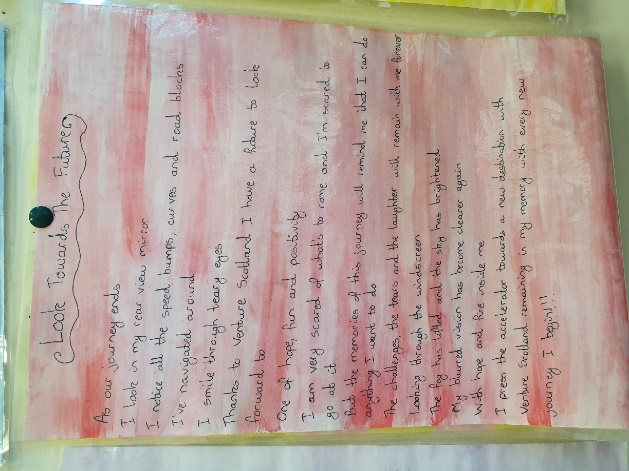 Look Towards The Future
As our journey ends
I look in my rear view mirror
I notice all the speed bumps, curves and road blocks
I've navigated around
I smile through teary eyes
Thanks to Venture Scotland I have a future to look
forward to
One of hope, fun and positivity
I am very scared of what's to come and I'm scared to
go at it
But the memories of this journey will remind me that I can do
anything I want to do
The challenges, the tears and the laughter will remain with me forever
Looking through the windscreen
The fog has lifted and the sky has brightened
My blurred vision has become clearer again
With hope and fire inside me
I press the accelerator towards a new destination with
Venture Scotland remaining in my memory with every new
journey I begin!!!